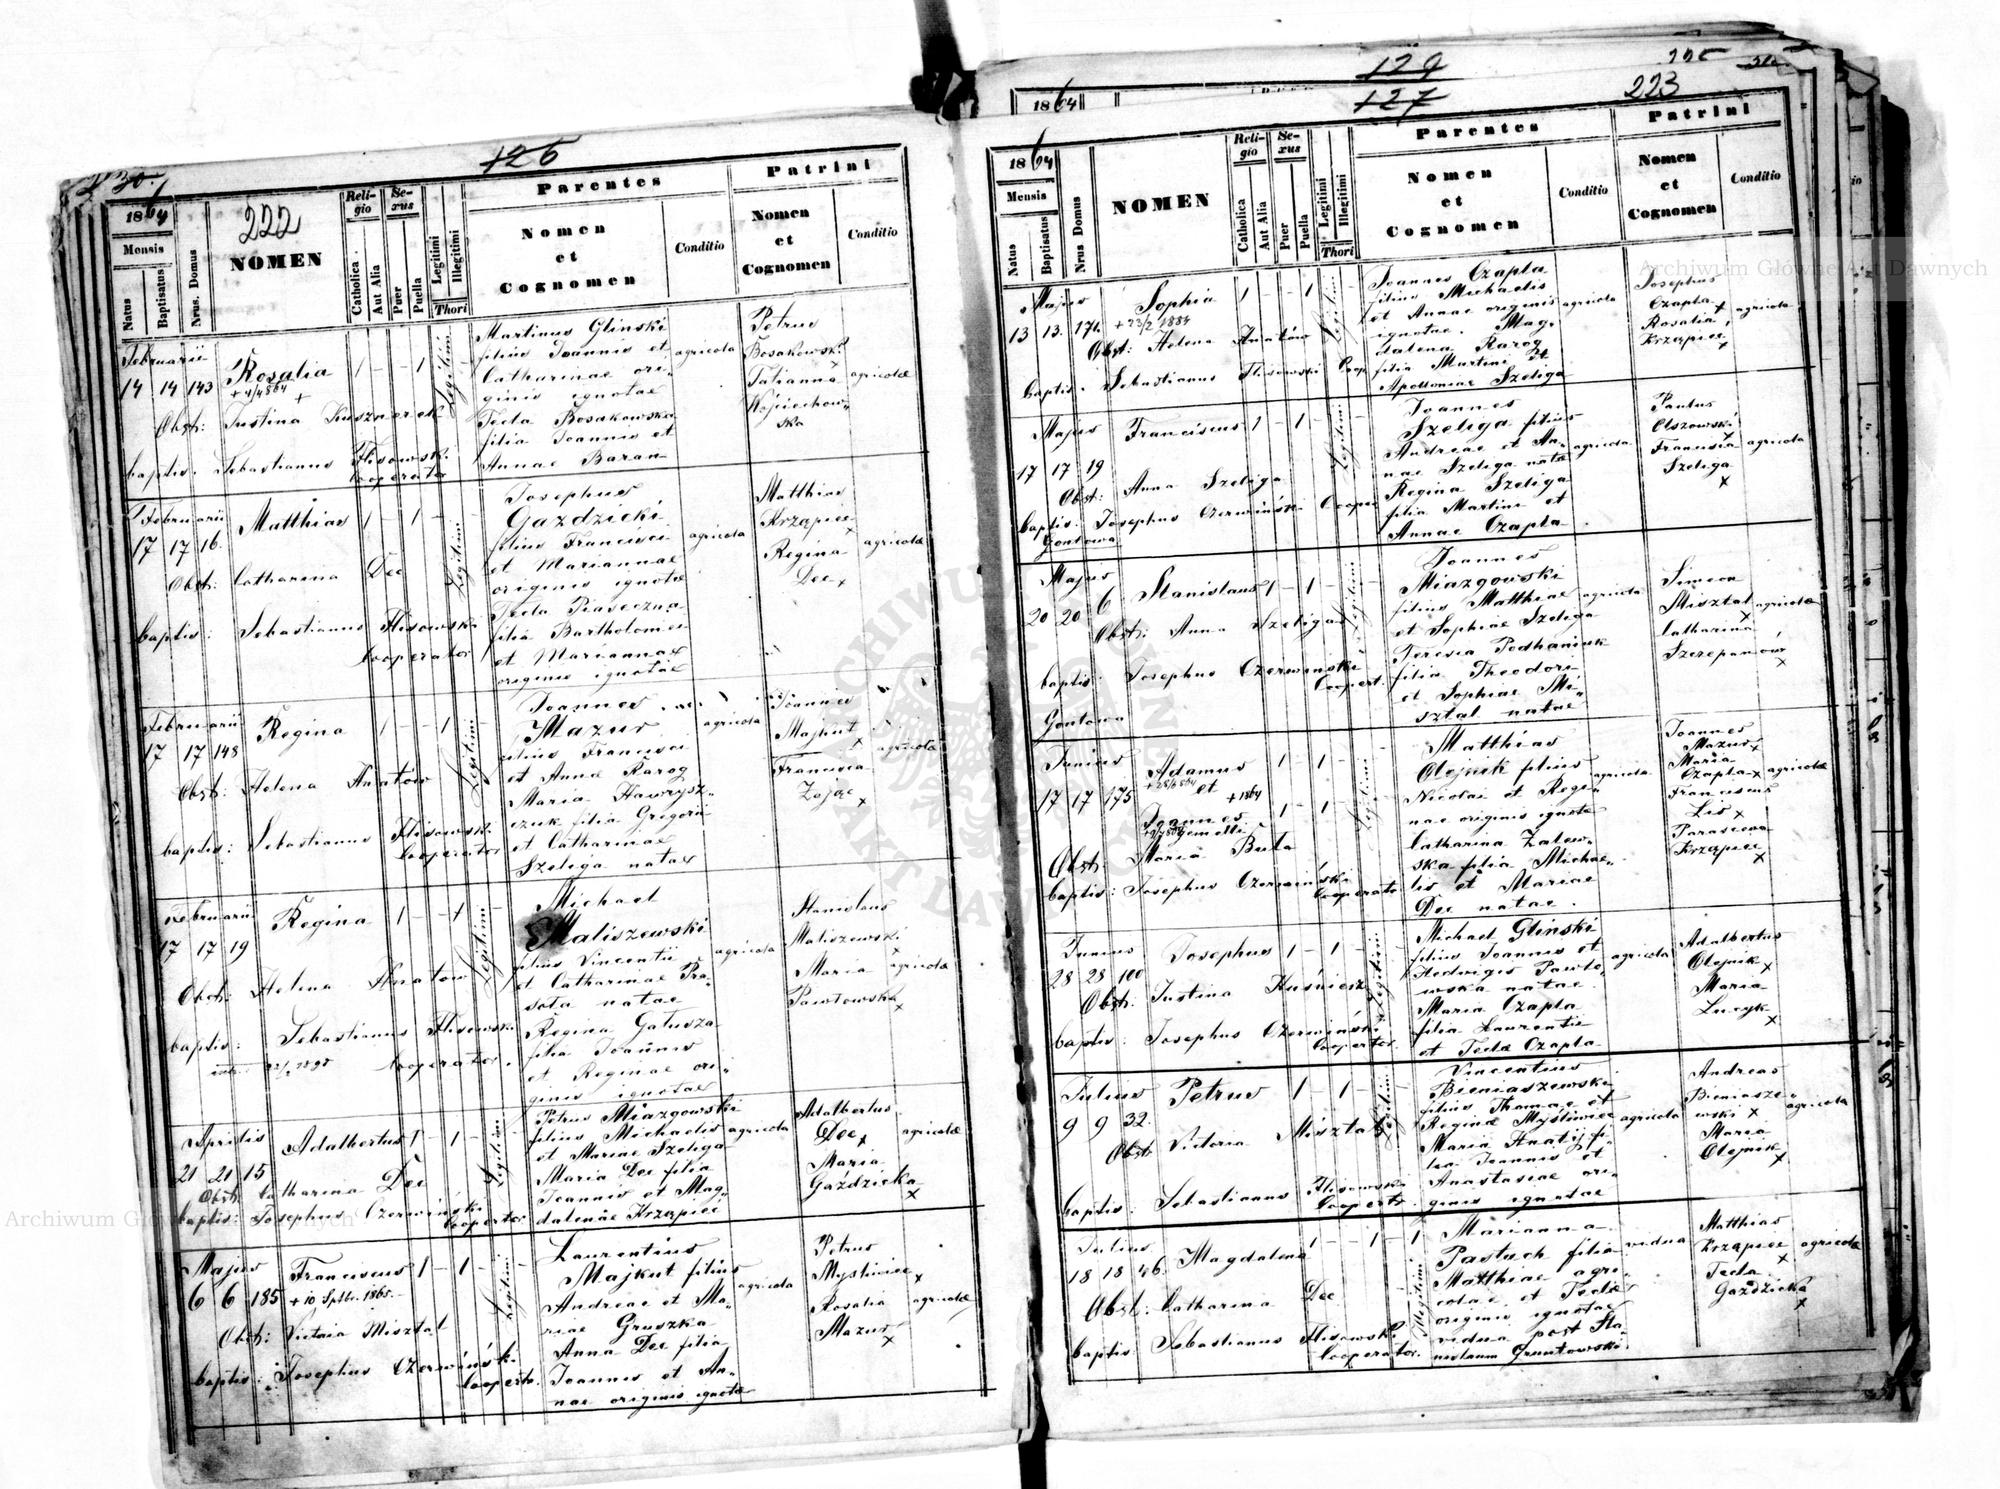 126
1864
222
Mensis
Natus
Baptisatus
Nrus. Domus
NOMEN
Religio
Catholica.
Aut Alia
Sexus
Puer
Puella
Legitimi
Illegitimi
Thori
Parentes
Nomen
et
Cognomen
Conditio
Patrini
Nomen
et
Cognomen
Conditio
Februarii
14 14 143
Rosalia
+ 4/4 864
1 - - 1
Legitimi
Obst: Justina Kusznierek
baptis. Sebastianus Flisowski
Cooperator
Martinus Glinski
filius Joannis et
Catharinae ori-
ginis ignotae
Tecla Bosakowska
filia Joannis et
Annae Baran
agricola
Petrus
Bosakowski
Tatianna
Wojciechow-
ska
agricolae
Februarii
17 17 16.
Matthias
1 - 1 -
Legitimi
Obst: Catharina Dec
baptis: Sebastianus Flisowski
Cooperator
Josephus
Gazdzicki
filius Francisci
et Mariannae
originis ignotae
Tecla Piaseczna
filia Bartholomei
et Mariannae
originis ignotae
agricola
Matthias
Krząpiec
Regina
Dec
agricolae
Februarii
17 17 148
Regina
1 - - 1
Legitimi
Obst: Helena Hnatów
baptis: Sebastianus Flisowski
Cooperator
Joannes
Mazur
filius Francisci
et Anna Rarog
Maria Hawrysz-
czuk filia Gregorii
et Catharinae
Szeliga natae
agricola
Joannes
Majkut
Francisca
Zając
agricolae
Februarii
17 17 19
Regina
1 - - 1
Legitimi
Obst: Helena Hnatow
baptis: Sebastianus Flisowski
Cooperator.
Michael
Maliszewski
filius Vincentii
et Catharinae Pra-
sota natae
Regina Gałusza
filia Joannis
et Reginae ori-
ginis ignotae
agricola
Stanislaus
Maliszewski
Maria
Pawłowska
agricolae
Aprilis
21 21 15
Adalbertus
1 - 1 -
Legitimi
Obst: Catharina Dec
baptis: Josephus Czerwiński
Cooperator
Petrus Miazgowski
filius Michaelis
et Mariae Szeliga
Maria Dec filia
Joannis et Mag-
dalenae Krząpiec
agricola
Adalbertus
Dec
Maria
Gaździcka
agricolae
Majus
6 6 185
Franciscus
+ 10 Septbr. 1865.
1 - 1 -
Legitimi
Obst: Victoria Misztal
baptis: Josephus Czerwiński
Cooperto.
Laurentius
Majkut filius
Andreae et Ma-
riae Gruszka
Anna Dec filia
Joannis et An-
nae originis ignotae
agricola
Petrus
Mysliwiec
Rosalia
Mazur
agricolae
129
1864
127
223
1864
Mensis
Natus
Baptisatus
Nrus Domus
NOMEN
Religio
Catholica
Aut Alia
Sexus
Puer
Puella
Legitimi
Illegitimi
Thori
Parentes
Nomen
et
Cognomen
Conditio
Patrini
Nomen
et
Cognomen
Conditio
Majus
13 13. 171.
Sophia
+ 23/2 1884
1 - - 1
Legitimi
Obst: Helena Hnatów
baptis. Sebastianus Flisowski Coop
Joannes Czapla
filius Michaelis
et Annae originis
ignotae. Mag-
dalena Rarog
filia Martini et
Apolloniae Szeliga
agricola
Josephus
Czapla
Rosalia
Krząpiec
agricolae
Majus
17 17 19
Franciscus
1 - 1 -
Legitimi
Obst: Anna Szeliga
baptis. Josephus Czerwiński Cooper
Gontowa
Joannes
Szeliga filius
Andreae et An-
nae Szeliga natae
Regina Szeliga
filia Martini et
Annae Czapla.
agricola
Paulus
Olszowski
Francisca
Szeliga
agricola
Majus
20 20 6
Stanislaus
1 - 1 -
Legitimi
Obst: Anna Szeliga
baptis: Josephus Czerwinski
Coopert.
Gontowa
Joannes
Miazgowski
filius Matthiae
et Sophiae Szeliga
Teresia Podhaniuk
filia Theodori
et Sophiae Mi-
sztal natae
agricola
Simeon
Misztal
Catharina
Szczepanów
agricolae
Junius
17 17 175
Adamus
+ 28/6 864
et
+ 1864
Joannes
gemelli
1 - 1 -
1 - 1 -
Legitimi
Obst: Maria Buta
baptis: Josephus Czerwiński
Cooperato
Matthias
Olejnik filius
Nicolai et Regi-
nae originis ignotae
Catharina Zalew-
ska filia Michae-
lis et Mariae
Dec natae.
agricola
Joannes
Mazur
Maria
Czapla
Franciscus
Lis
Parascena
Krząpiec
agricolae
Junius
28 28 100
Josephus
1 - 1 -
Legitimi
Obst: Justina Kuśnierz
baptis: Josephus Czerwiński
Cooperator.
Michael Glinski
filius Joannis et
Hedwigis Pawlo-
wska natae.
Maria Czapla
filia Laurentii
et Tecla Czapla
agricola
Adalbertus
Olejnik
Maria
Lucyk
Julius
9 9 32.
Petrus
1 - 1 -
Legitimi
Obst: Victoria Misztal
baptis: Sebastianus Flisowski
Cooperto.
Vincentius
Bieniaszewski
filius Thomae et
Reginae Myśliwiec
Maria Hnatij fi-
lia Joannis et
Anastasiae ori-
ginis ignotae
agricola
Andreas
Bieniasze-
wski
Maria
Olejnik
agricolae
Julius
18 18 46.
Magdalena
1 - - 1 - 1
Illegitimi
Obst: Catharina Dec
baptis: Sebastianus Flisowski
Cooperator.
Marianna
Pastuch filia
Matthiae agri-
colae et Teclae
originis ignotae
vidua post Sta-
nislaum Gruntowski.
vidua
Matthias
Krząpiec
Tecla
Gaździcka
agricolae
Archiwum Główne Akt Dawnych
Archiwum Główne Akt Dawnych
ARCHIWUM GŁÓWNE AKT DAWNYCH